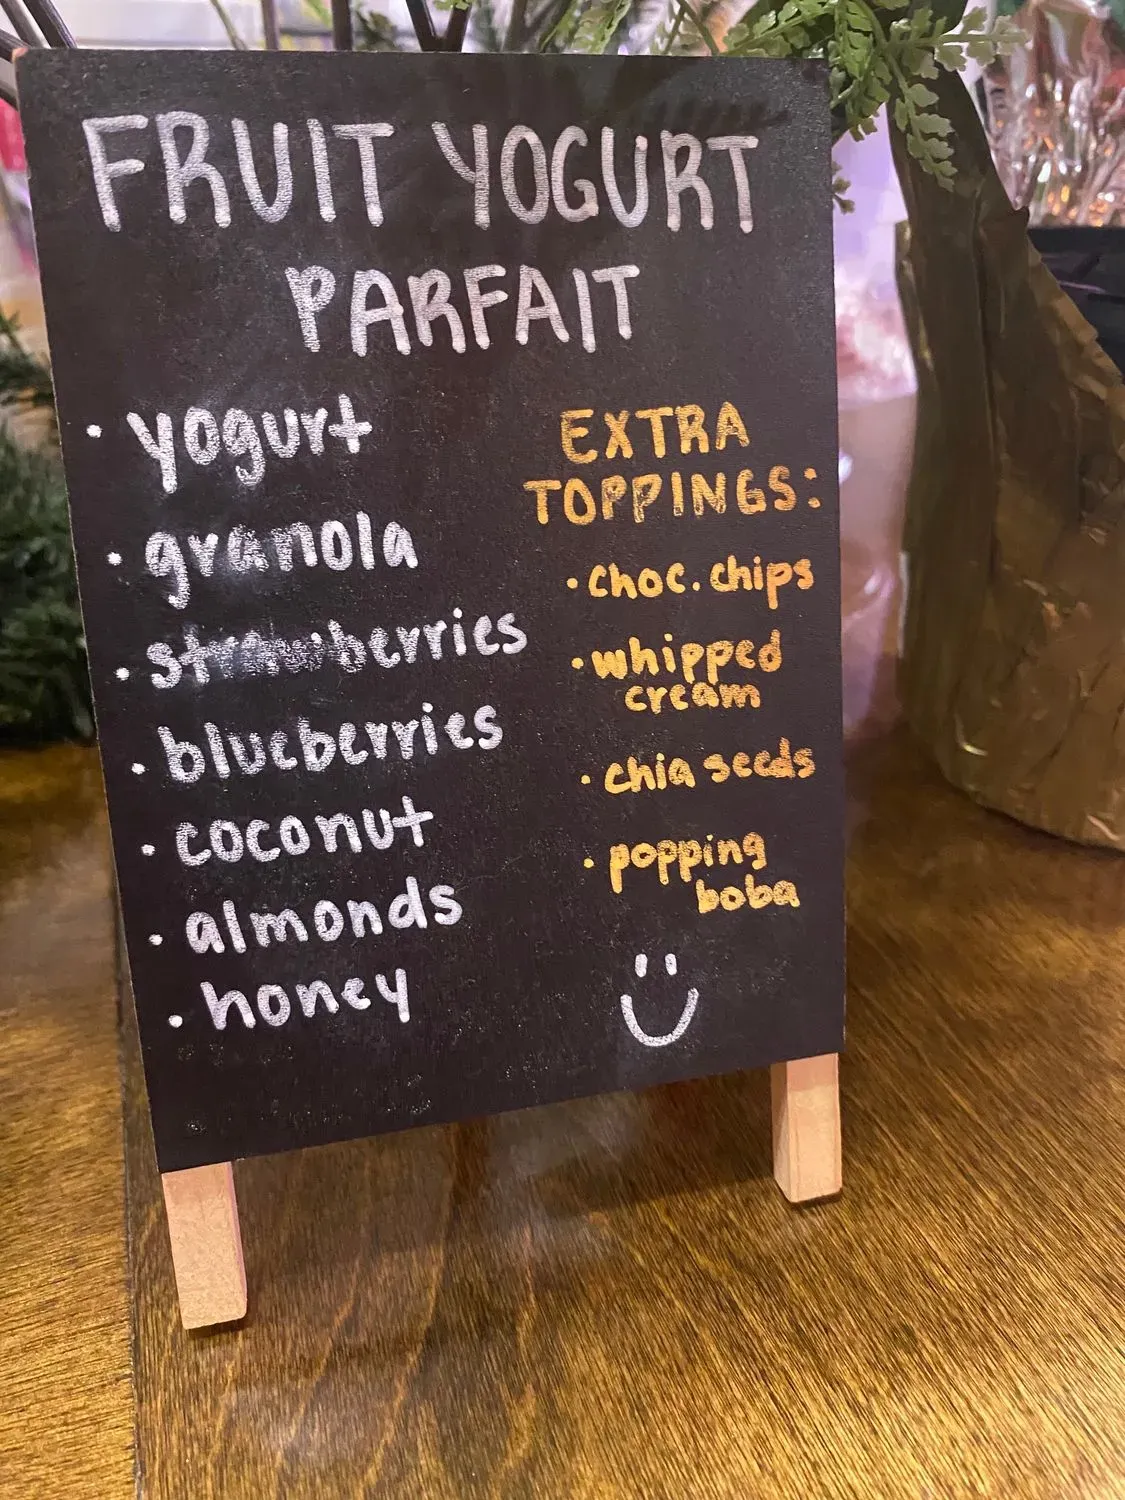 FRUIT YOGURT
PARFAIT
• yogurt
• granola
• strawberries
• blueberries
• coconut
• almonds
• honey
EXTRA
TOPPINGS:
• choc. chips
• whipped
cream
• chia seeds
• popping
boba